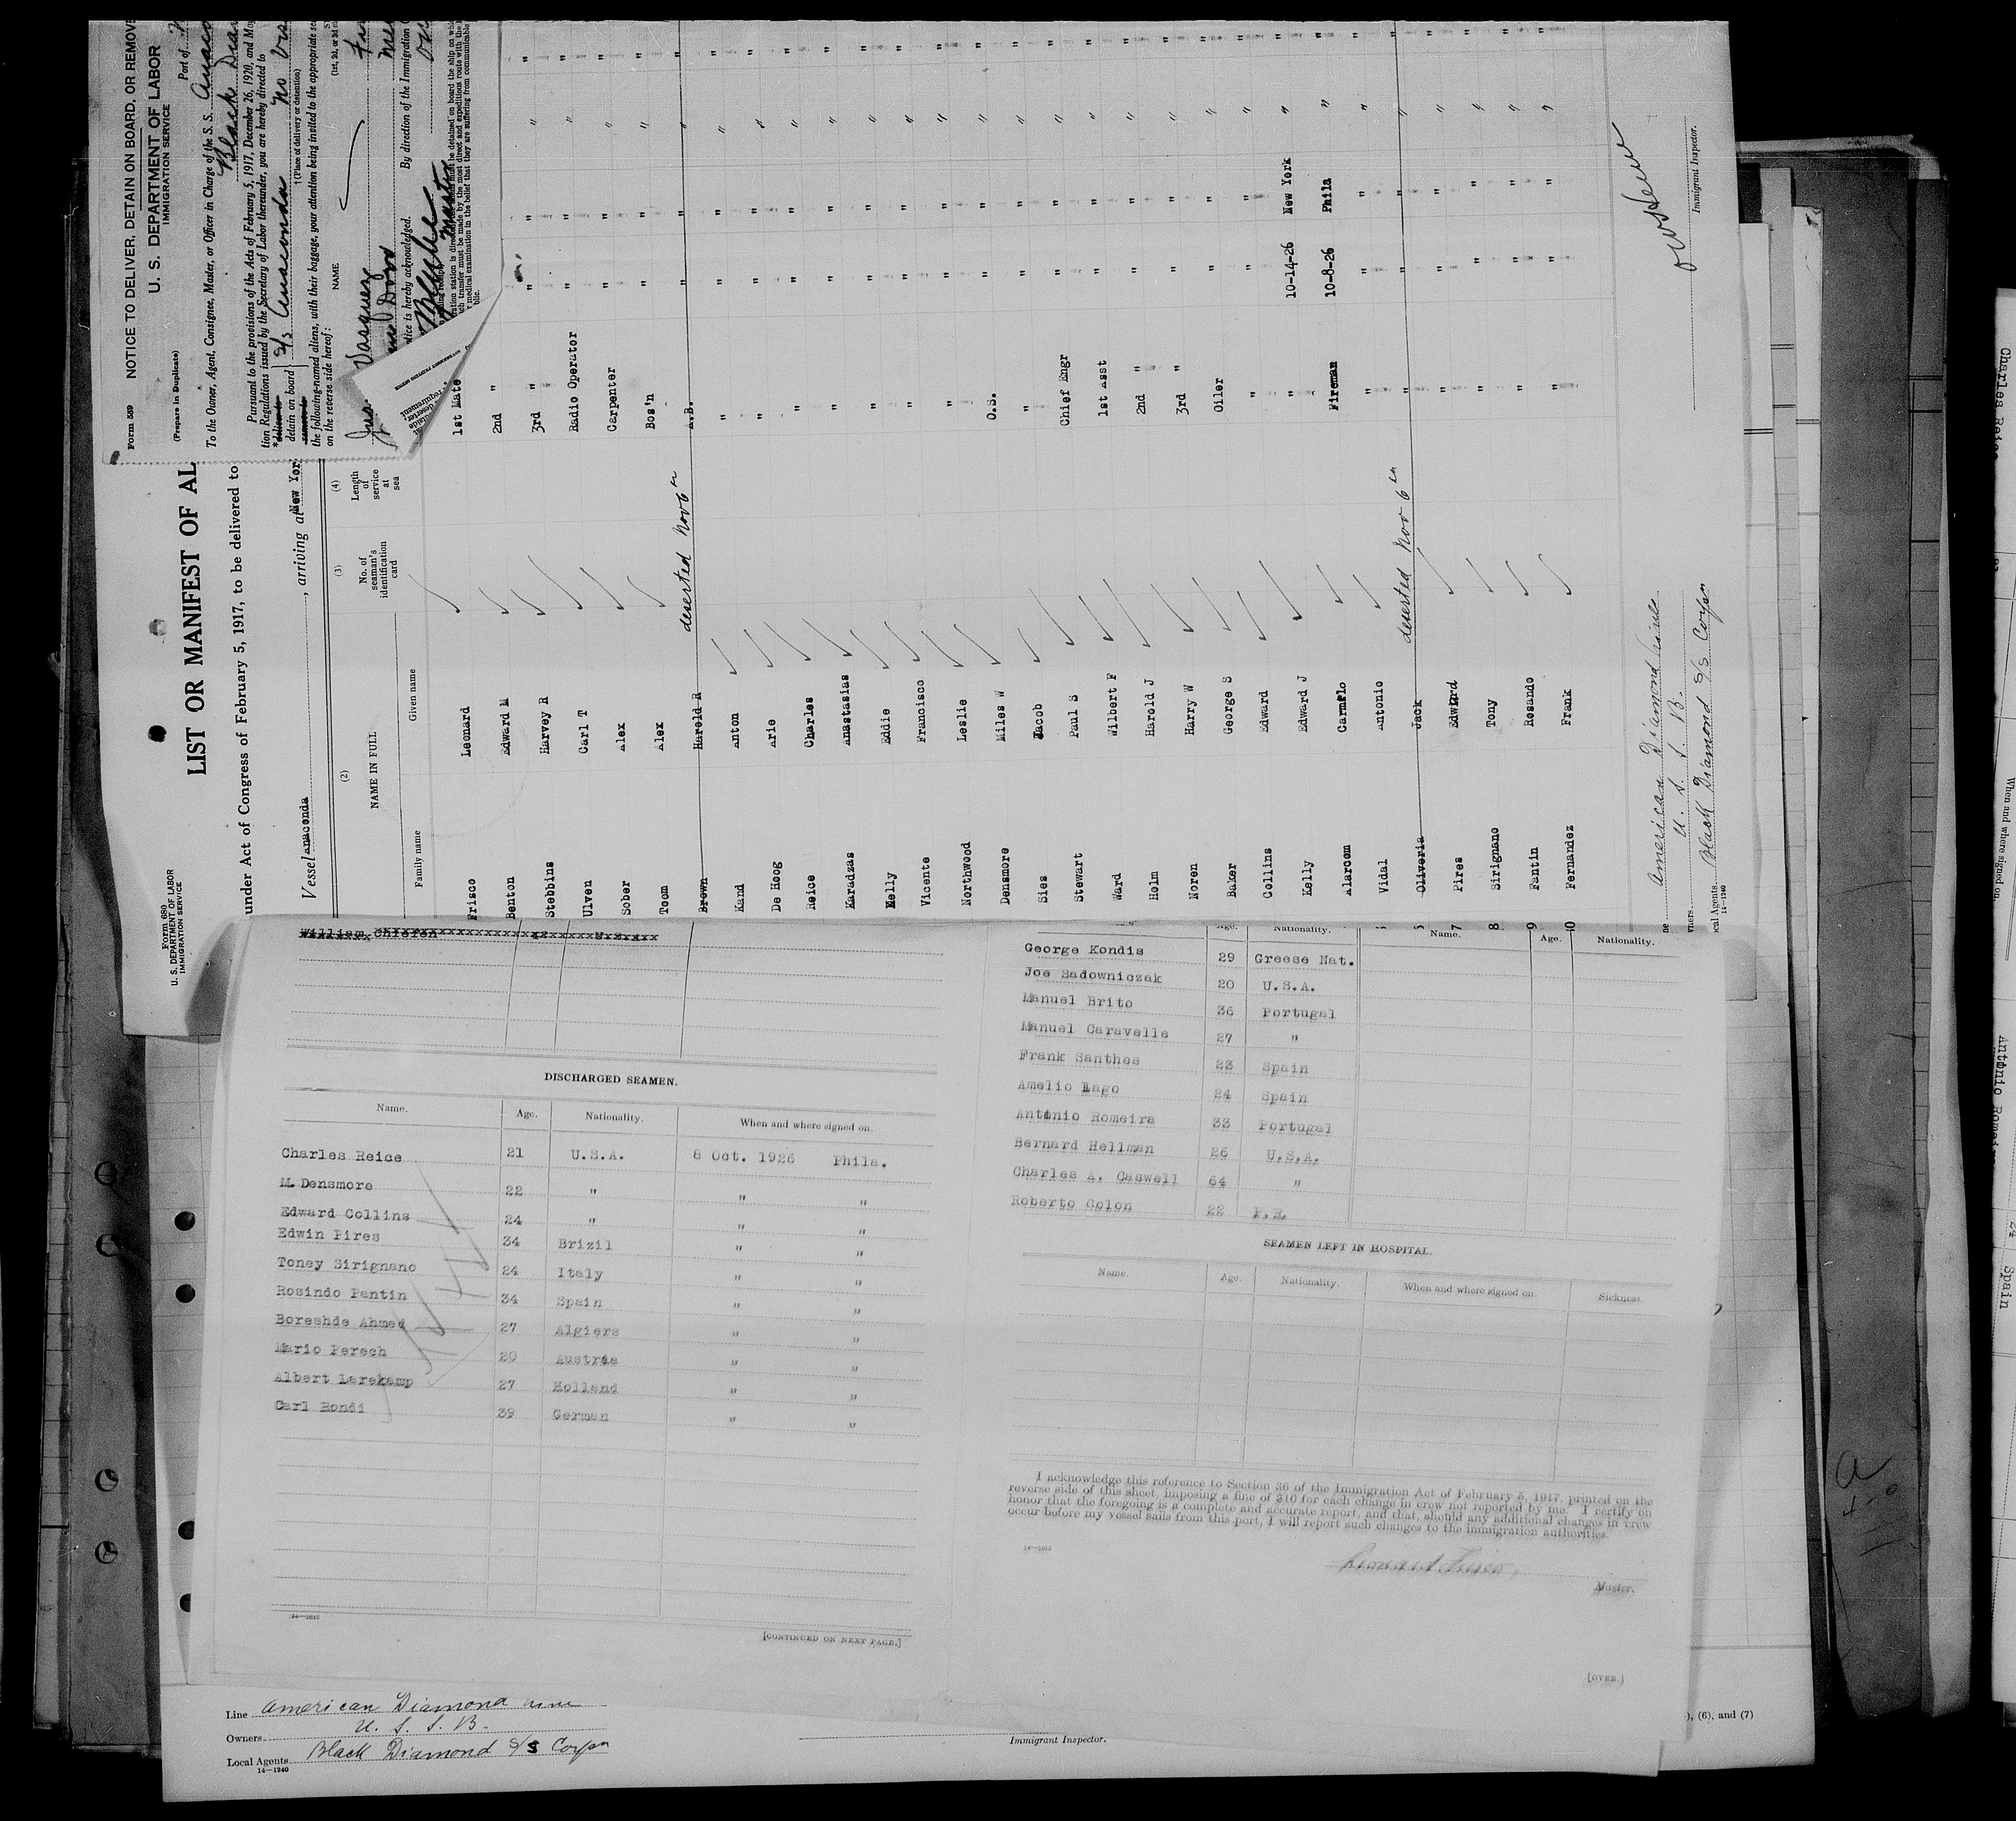 Form 589 NOTICE TO DELIVER, DETAIN ON BOARD, OR REMOVE
U. S. DEPARTMENT OF LABOR
IMMIGRATION SERVICE
(Prepare in Duplicate)
Port of
To the Owner, Agent, Consignee, Master, or Officer in Charge of the S. S.
Black
Pursuant to the provisions of the Acts of February 5, 1917, December 26, 1920, and
tion Regulations issued by the Secretary of Labor thereunder, you are hereby directed to
detain on board S/s Anaconda no
†(Place of delivery or detention)
the following-named aliens, with their baggage, your attention being invited to the appropriate
on the reverse side hereof:
NAME
Vasquez
By direction of the Immigration
is hereby acknowledged.
Master
Form 680
U. S. DEPARTMENT OF LABOR
IMMIGRATION SERVICE
LIST OR MANIFEST OF AL
under Act of Congress of February 5, 1917, to be delivered to
Vessel anaconda, arriving at New Yor
(2) (3) (4)
NAME IN FULL
No. of seaman's identification card
Length of service at sea
Family name Given name
Frisco Leonard 1st Mate
Benton Edward M 2nd " " " " "
Stebbins Harvey R 3rd " " " " "
Ulven Carl T Radio Operator " " " "
Sober Alex Carpenter " " " "
Toom Alex Bos'n " " " "
Brown Harold R deserted Nov 6th A.B. " " " "
Kand Anton " " " " "
De Hoog Arie " " " " "
Reice Charles " " " " "
Karadzas Anastasias " " " " "
Kelly Eddie " " " " "
Vicente Francisco " " " " "
Northwood Leslie " " " " "
Densmore Miles W O.S. " " " "
Sies Jacob " " " " "
Stewart Paul S Chief Engr " " " "
Ward Wilbert F 1st Asst " " " "
Holm Harold J 2nd " " " " "
Noren Harry W 3rd " " " " "
Baker George S Oiler " " " "
Collins Edward " " " " "
Kelly Edward J " 10-14-26 New York " "
Alarcom Carmflo Fireman 10-8-26 Phila " "
Vidal Antonio " " " " "
Oliveria Jack deserted Nov 6th " " " " "
Pires Edwird " " " " "
Sirignano Tony " " " " "
Pantin Rosando " " " " "
Fernandez Frank " " " " "
American Diamond Line
U. S. S. B.
Local Agents Black Diamond S/S Corpn
14—1240
Immigrant Inspector.
DISCHARGED SEAMEN.
Name. Age. Nationality. When and where signed on.
Charles Reice 21 U.S.A. 8 Oct. 1926 Phila.
M. Densmore 22 " " "
Edward Collins 24 " " "
Edwin Pires 34 Brizil " "
Toney Sirignano 24 Italy " "
Rosindo Pantin 34 Spain " "
Boreshde Ahmed 27 Algiers " "
Mario Perech 20 Austria " "
Albert Larekamp 27 Holland " "
Carl Rondi 39 German " "
14—1613
[CONTINUED ON NEXT PAGE.]
Age. Nationality. Name. Age. Nationality.
George Kondis 29 Greese Nat.
Joe Sadowniczak 20 U.S.A.
Manuel Brito 36 Portugal
Manuel Caravelle 27 "
Frank Santhes 23 Spain
Amelio Lago 24 Spain
Antonio Romeira 33 Portugal
Bernard Hellman 26 U.S.A.
Charles A. Caswell 64 "
Roberto Colon 22 P.R.
SEAMEN LEFT IN HOSPITAL.
Name. Age. Nationality. When and where signed on. Sickness.
I acknowledge this reference to Section 36 of the Immigration Act of February 5, 1917, printed on the
reverse side of this sheet, imposing a fine of $10 for each change in crew not reported by me. I certify on
honor that the foregoing is a complete and accurate report, and that, should any additional changes in crew
occur before my vessel sails from this port, I will report such changes to the immigration authorities.
14—1613
Master.
[OVER.]
Line American Diamond Line
Owners U. S. S. B.
Local Agents Black Diamond S/S Corpn
14—1240
Immigrant Inspector.
), (6), and (7)
Charles Reice
When and where signed on.
Spain